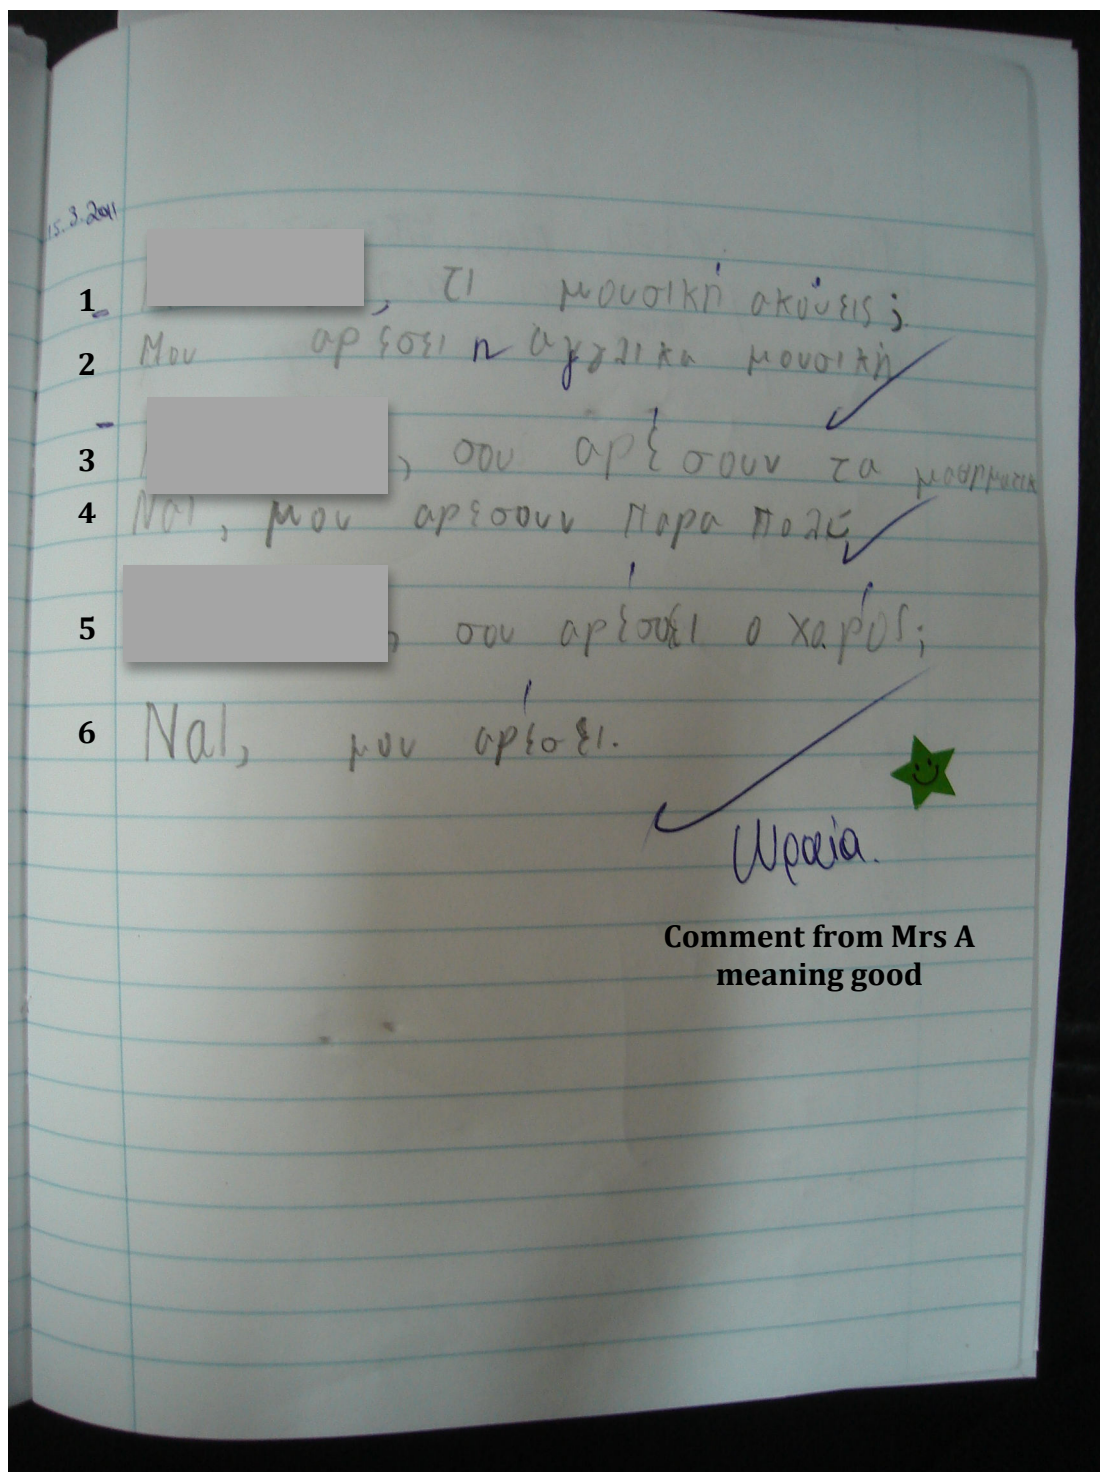 15.3.2011
1 , τι μουσική ακούεις;
2 Μου αρέσει η αγγλικη μουσική
3 , σου αρέσουν τα μαθηματικ
4 Ναι, μου αρεσουν παρα πολύ
5 , σου αρέσει ο χορός;
6 Ναι, μου αρέσει.
Ωραία.
Comment from Mrs A
meaning good